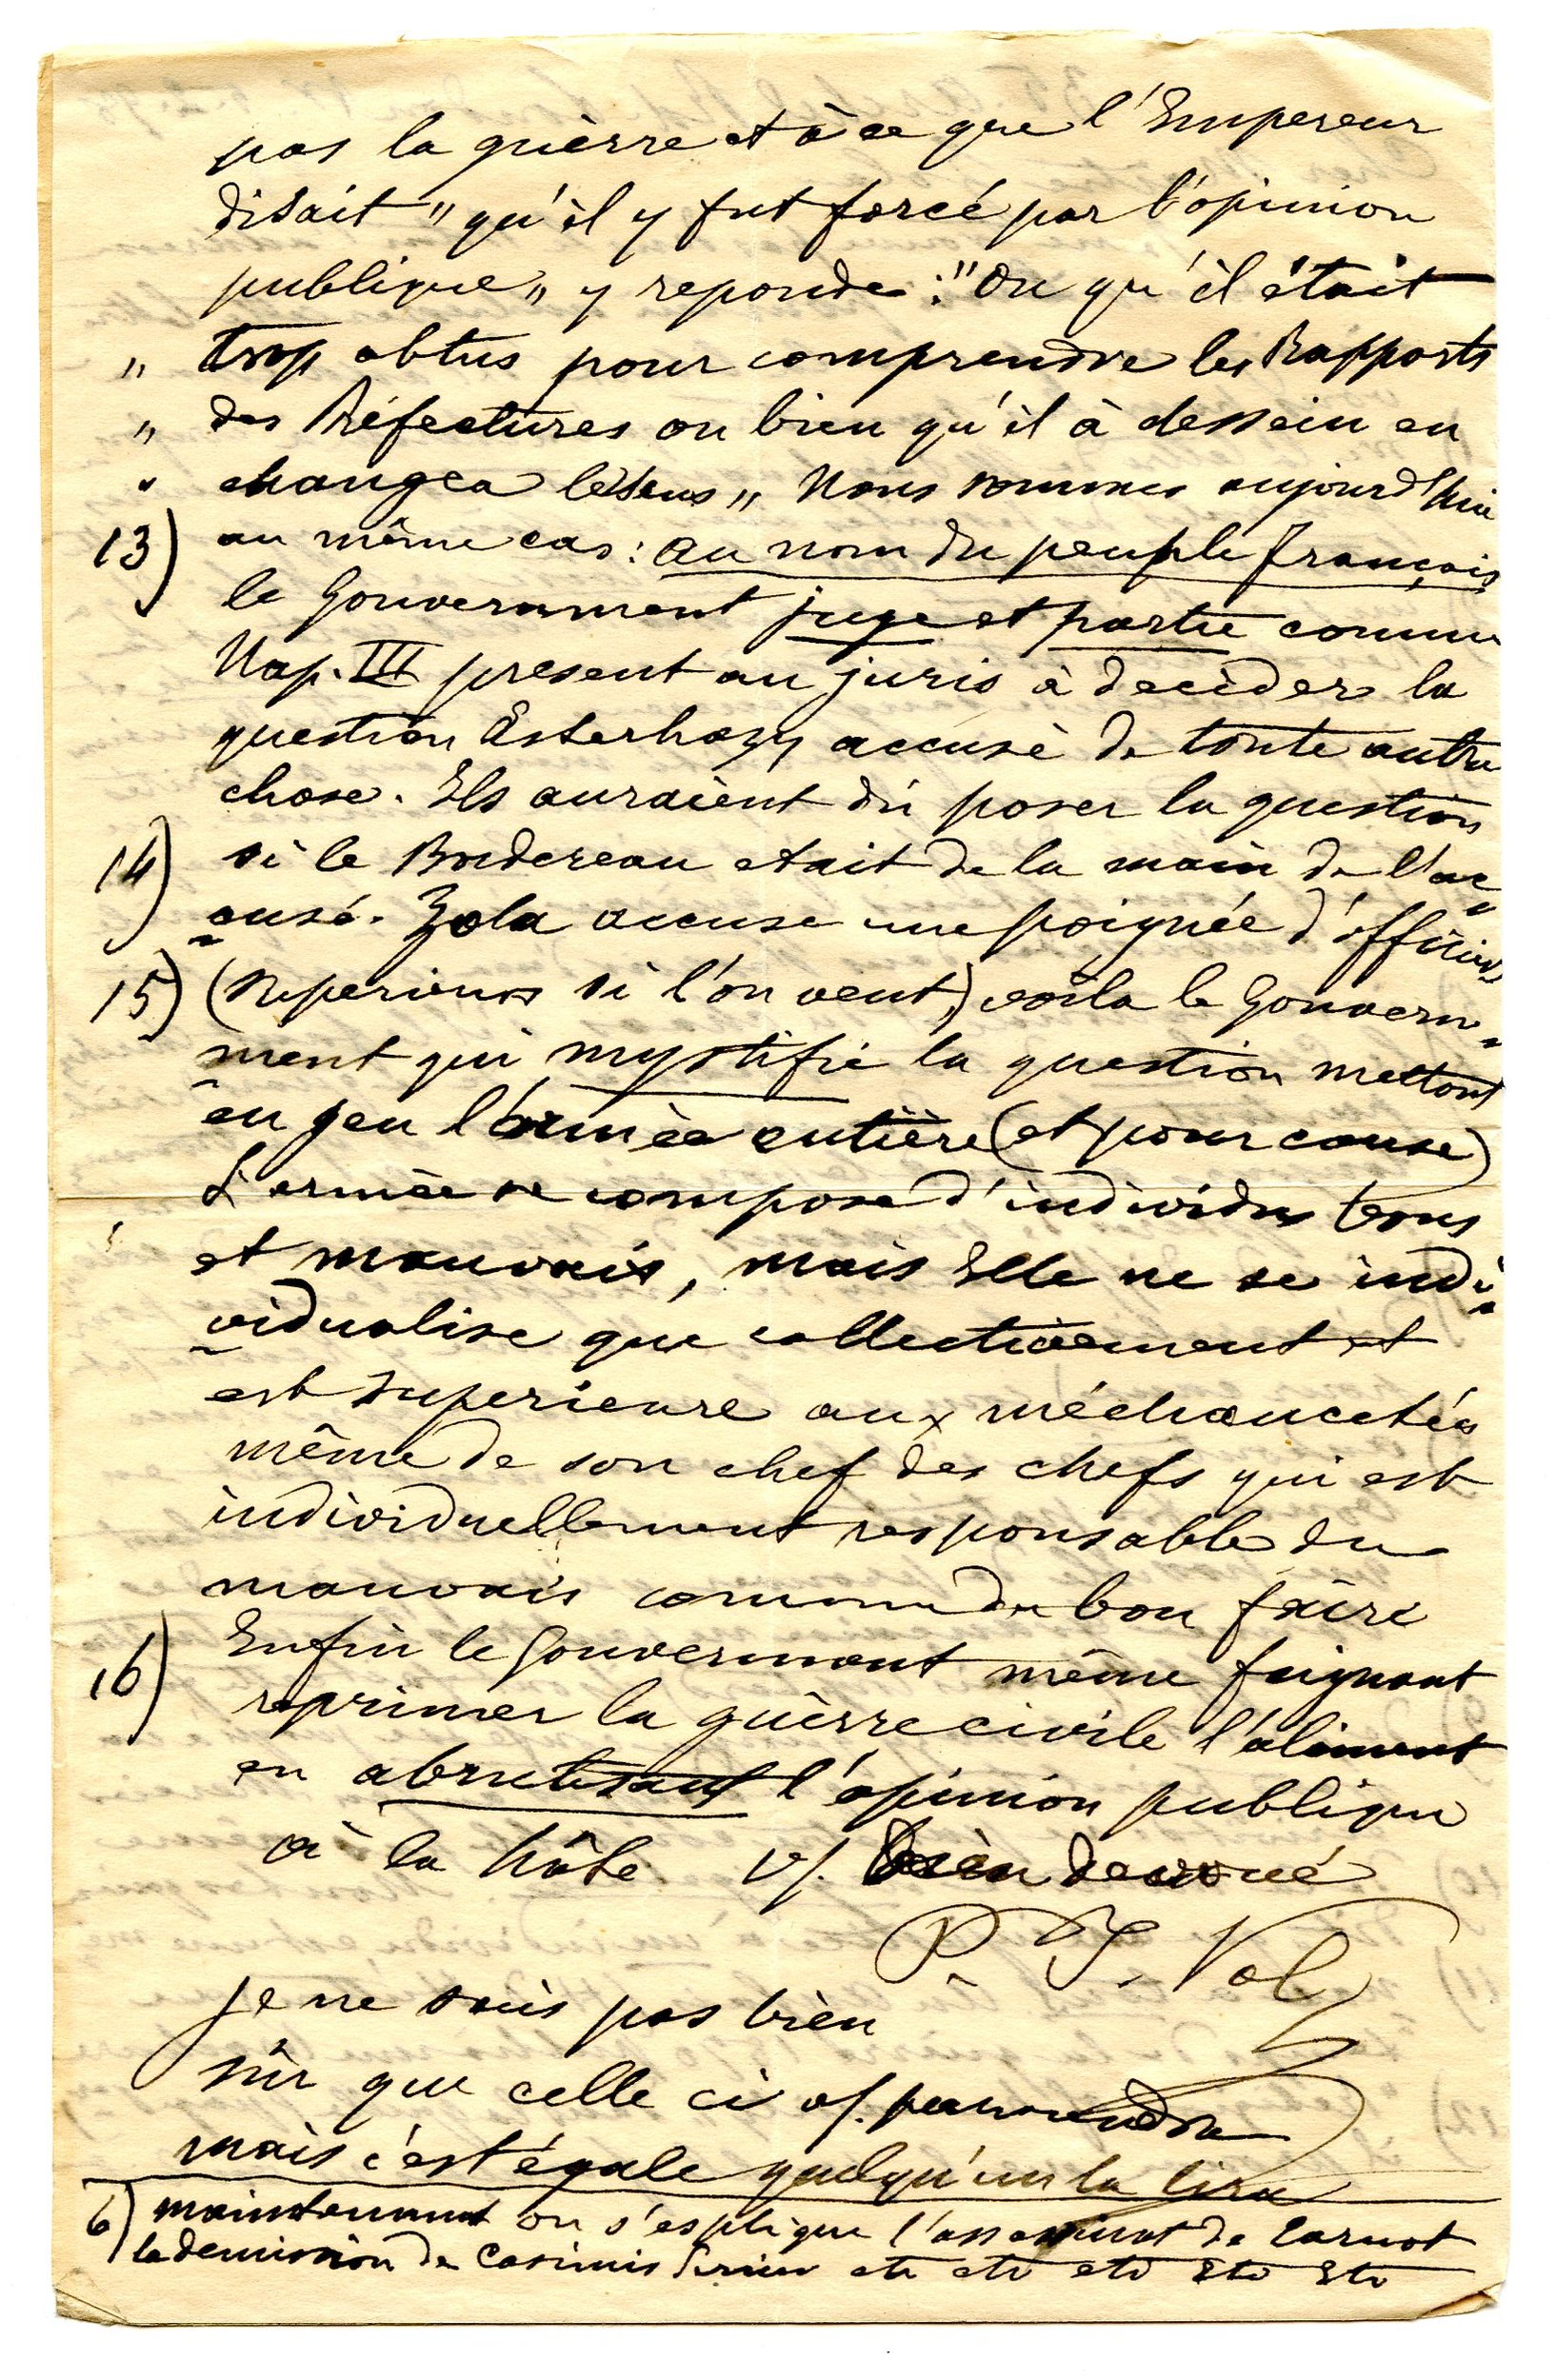 pas la guèrre et à ce que l'Empereur
disait „ qu'il y fut forcé par l'opinion
publique „ y reponde : " Ou qu'il était
„ trop obtus pour comprendre les Rapports
„ des Préfectures ou bien qu'il à dessein en
„ changea le sens „ Nous sommes aujourd'hui
13) au même cas : au nom du peuple français
le Gouvernement juge et partie comme
Nap. III present au juris à decider la
question Esterhazy accusè de toute autre
chose. Ils auraient dû poser la question
14) si le Bordereau etait de la main de l'ac=
cusé. Zola accuse une poignée d'officiers
15) (superieurs si l'on veut,) voila le Gouvern=
ment qui mystifie la question mettant
en jeu l'armèe entière (et pour cause)
L'armèe se compose d'individus bons
et mauvais, mais Elle ne se indi=
vidualise que collectivement et
est superieure aux méchancetées
même de son chef des chefs qui est
individuellement responsable du
mauvais comme du bon faire
16) Enfin le Gouverment même feignant
reprimer la guèrre civile l'aliment
en abrutisant l'opinion publique
à la hâte V/. bien devoué
P. J. Volz
Je ne suis pas bien
sûr que celle ci v/. parviendra
mais c'est égale quelqu'un la lira
6) maintenant on s'esplique l'assassinat de Carnot
la demission de Casimir Perier etc etc etc Etc Etc